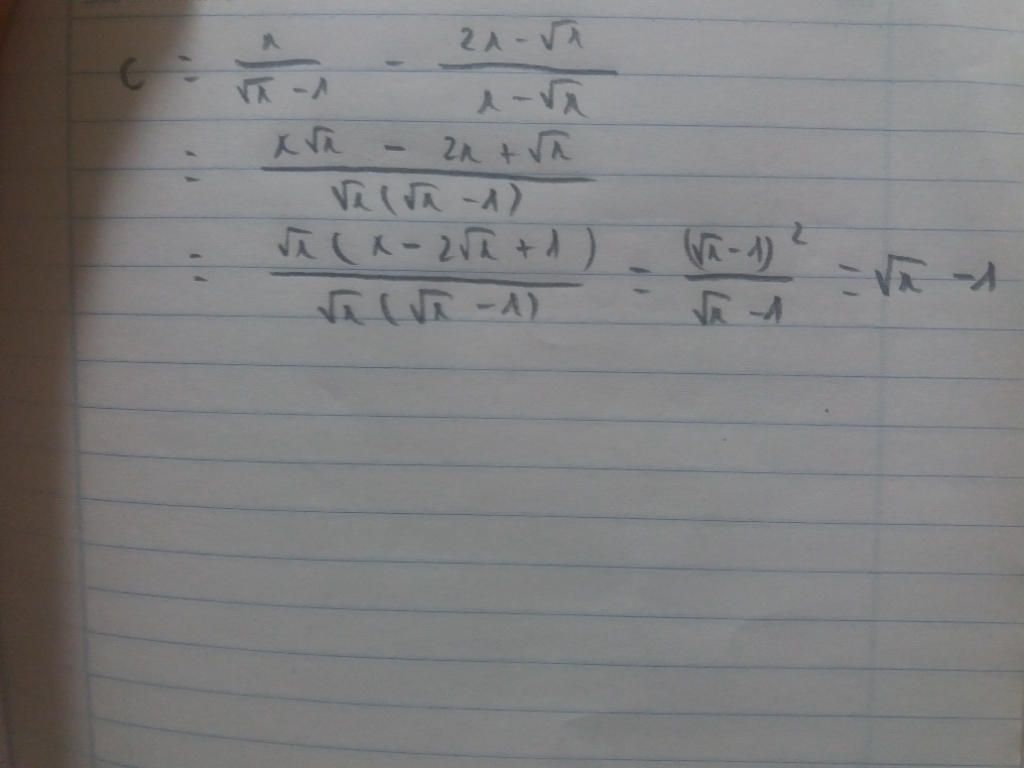 C = x/(√x - 1) - (2x - √x)/(x - √x)
= (x√x - 2x + √x)/(√x(√x - 1))
= √x(x - 2√x + 1)/(√x(√x - 1)) = (√x - 1)²/(√x - 1) = √x - 1